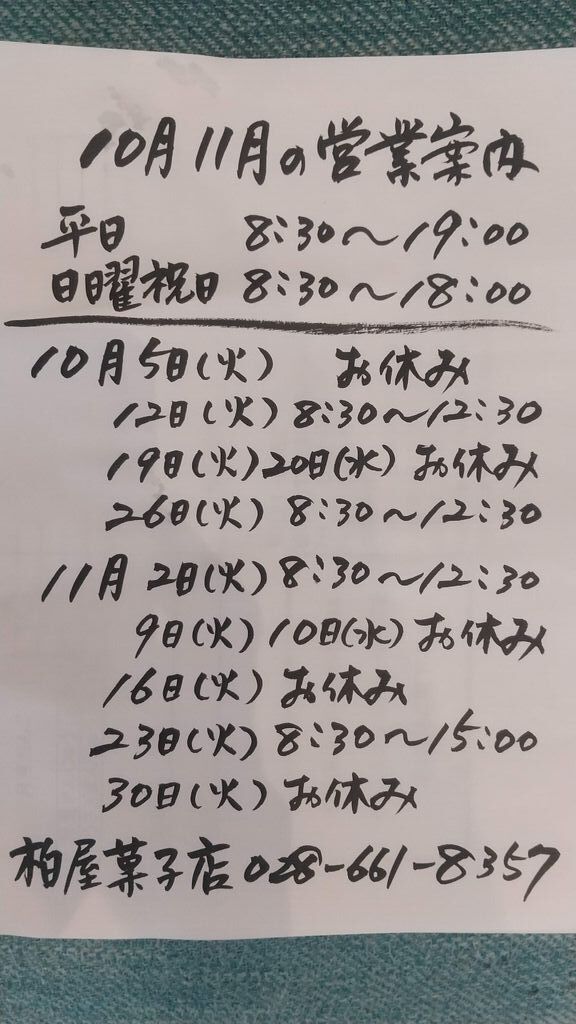 10月11月の営業案内
平日 8:30～19:00
日曜祝日 8:30～18:00
10月5日(火) お休み
12日(火) 8:30～12:30
19日(火)20日(水) お休み
26日(火) 8:30～12:30
11月 2日(火) 8:30～12:30
9日(火) 10日(水) お休み
16日(火) お休み
23日(火) 8:30～15:00
30日(火) お休み
柏屋菓子店 028-661-8357